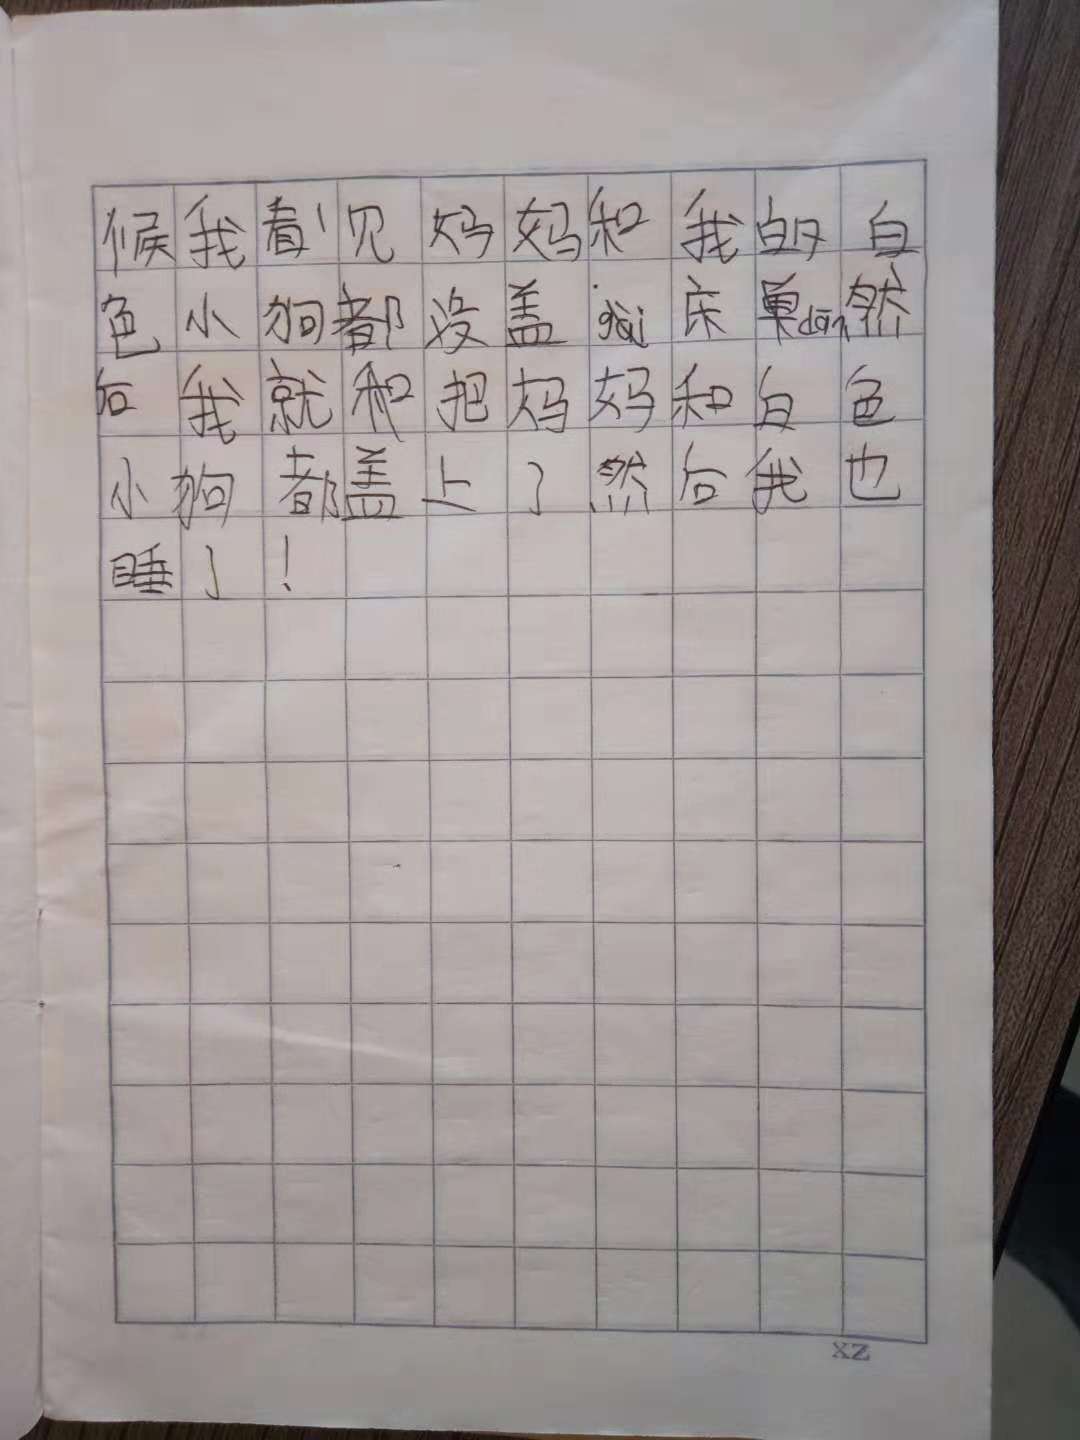 候我看见妈妈和我的白
色小狗都没盖gài床单dān然
后我就和把妈妈和白色
小狗都盖上了然后我也
睡了！
XZ